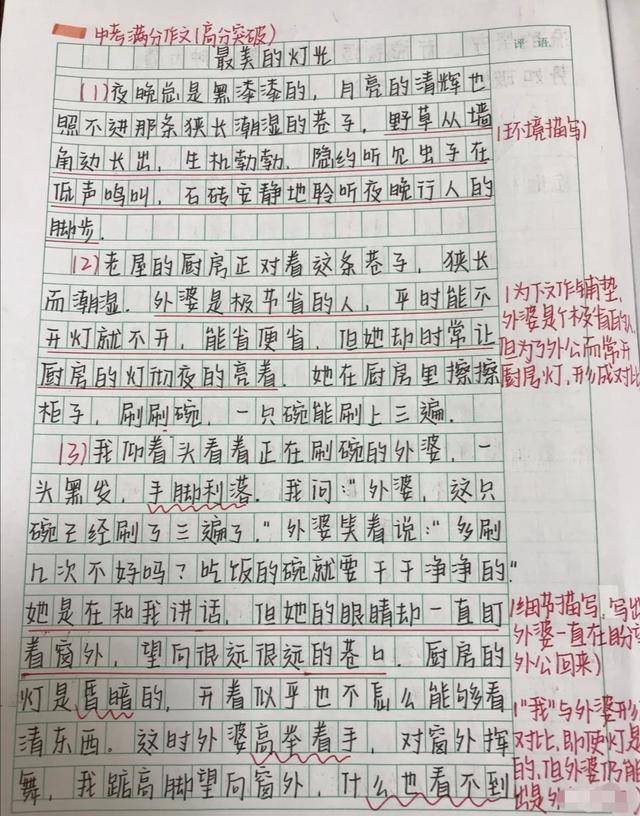 中考满分作文(高分突破)
最美的灯光
评语
(1)夜晚总是黑漆漆的，月亮的清辉也
照不进那条狭长潮湿的巷子，野草从墙
角边长出，生机勃勃．隐约听见虫子在
低声鸣叫，石砖安静地聆听夜晚行人的
脚步．
(环境描写)
(2)老屋的厨房正对着这条巷子，狭长
而潮湿．外婆是极节省的人，平时能不
开灯就不开，能省便省．但她却时常让
厨房的灯彻夜的亮着．她在厨房里擦擦
柜子，刷刷碗，一只碗能刷上三遍．
(为下文作铺垫，
外婆是个极省的人
但为了外公而常开
厨房灯，形成对比
(3)我仰着头看着正在刷碗的外婆，一
头黑发，手脚利落．我问："外婆，这只
碗已经刷了三遍了．"外婆笑着说："多刷
几次不好吗？吃饭的碗就要干干净净的．"
她是在和我讲话，但她的眼睛却一直盯
着窗外，望向很远很远的巷口．厨房的
灯是昏暗的，开着似乎也不怎么能够看
清东西．这时外婆高举着手，对窗外挥
舞，我踮高脚望向窗外，什么也看不到
(细节描写，写出
外婆一直在盼
外公回来)
("我"与外婆形成
对比，即使灯是
的，但外婆仍能
出是外